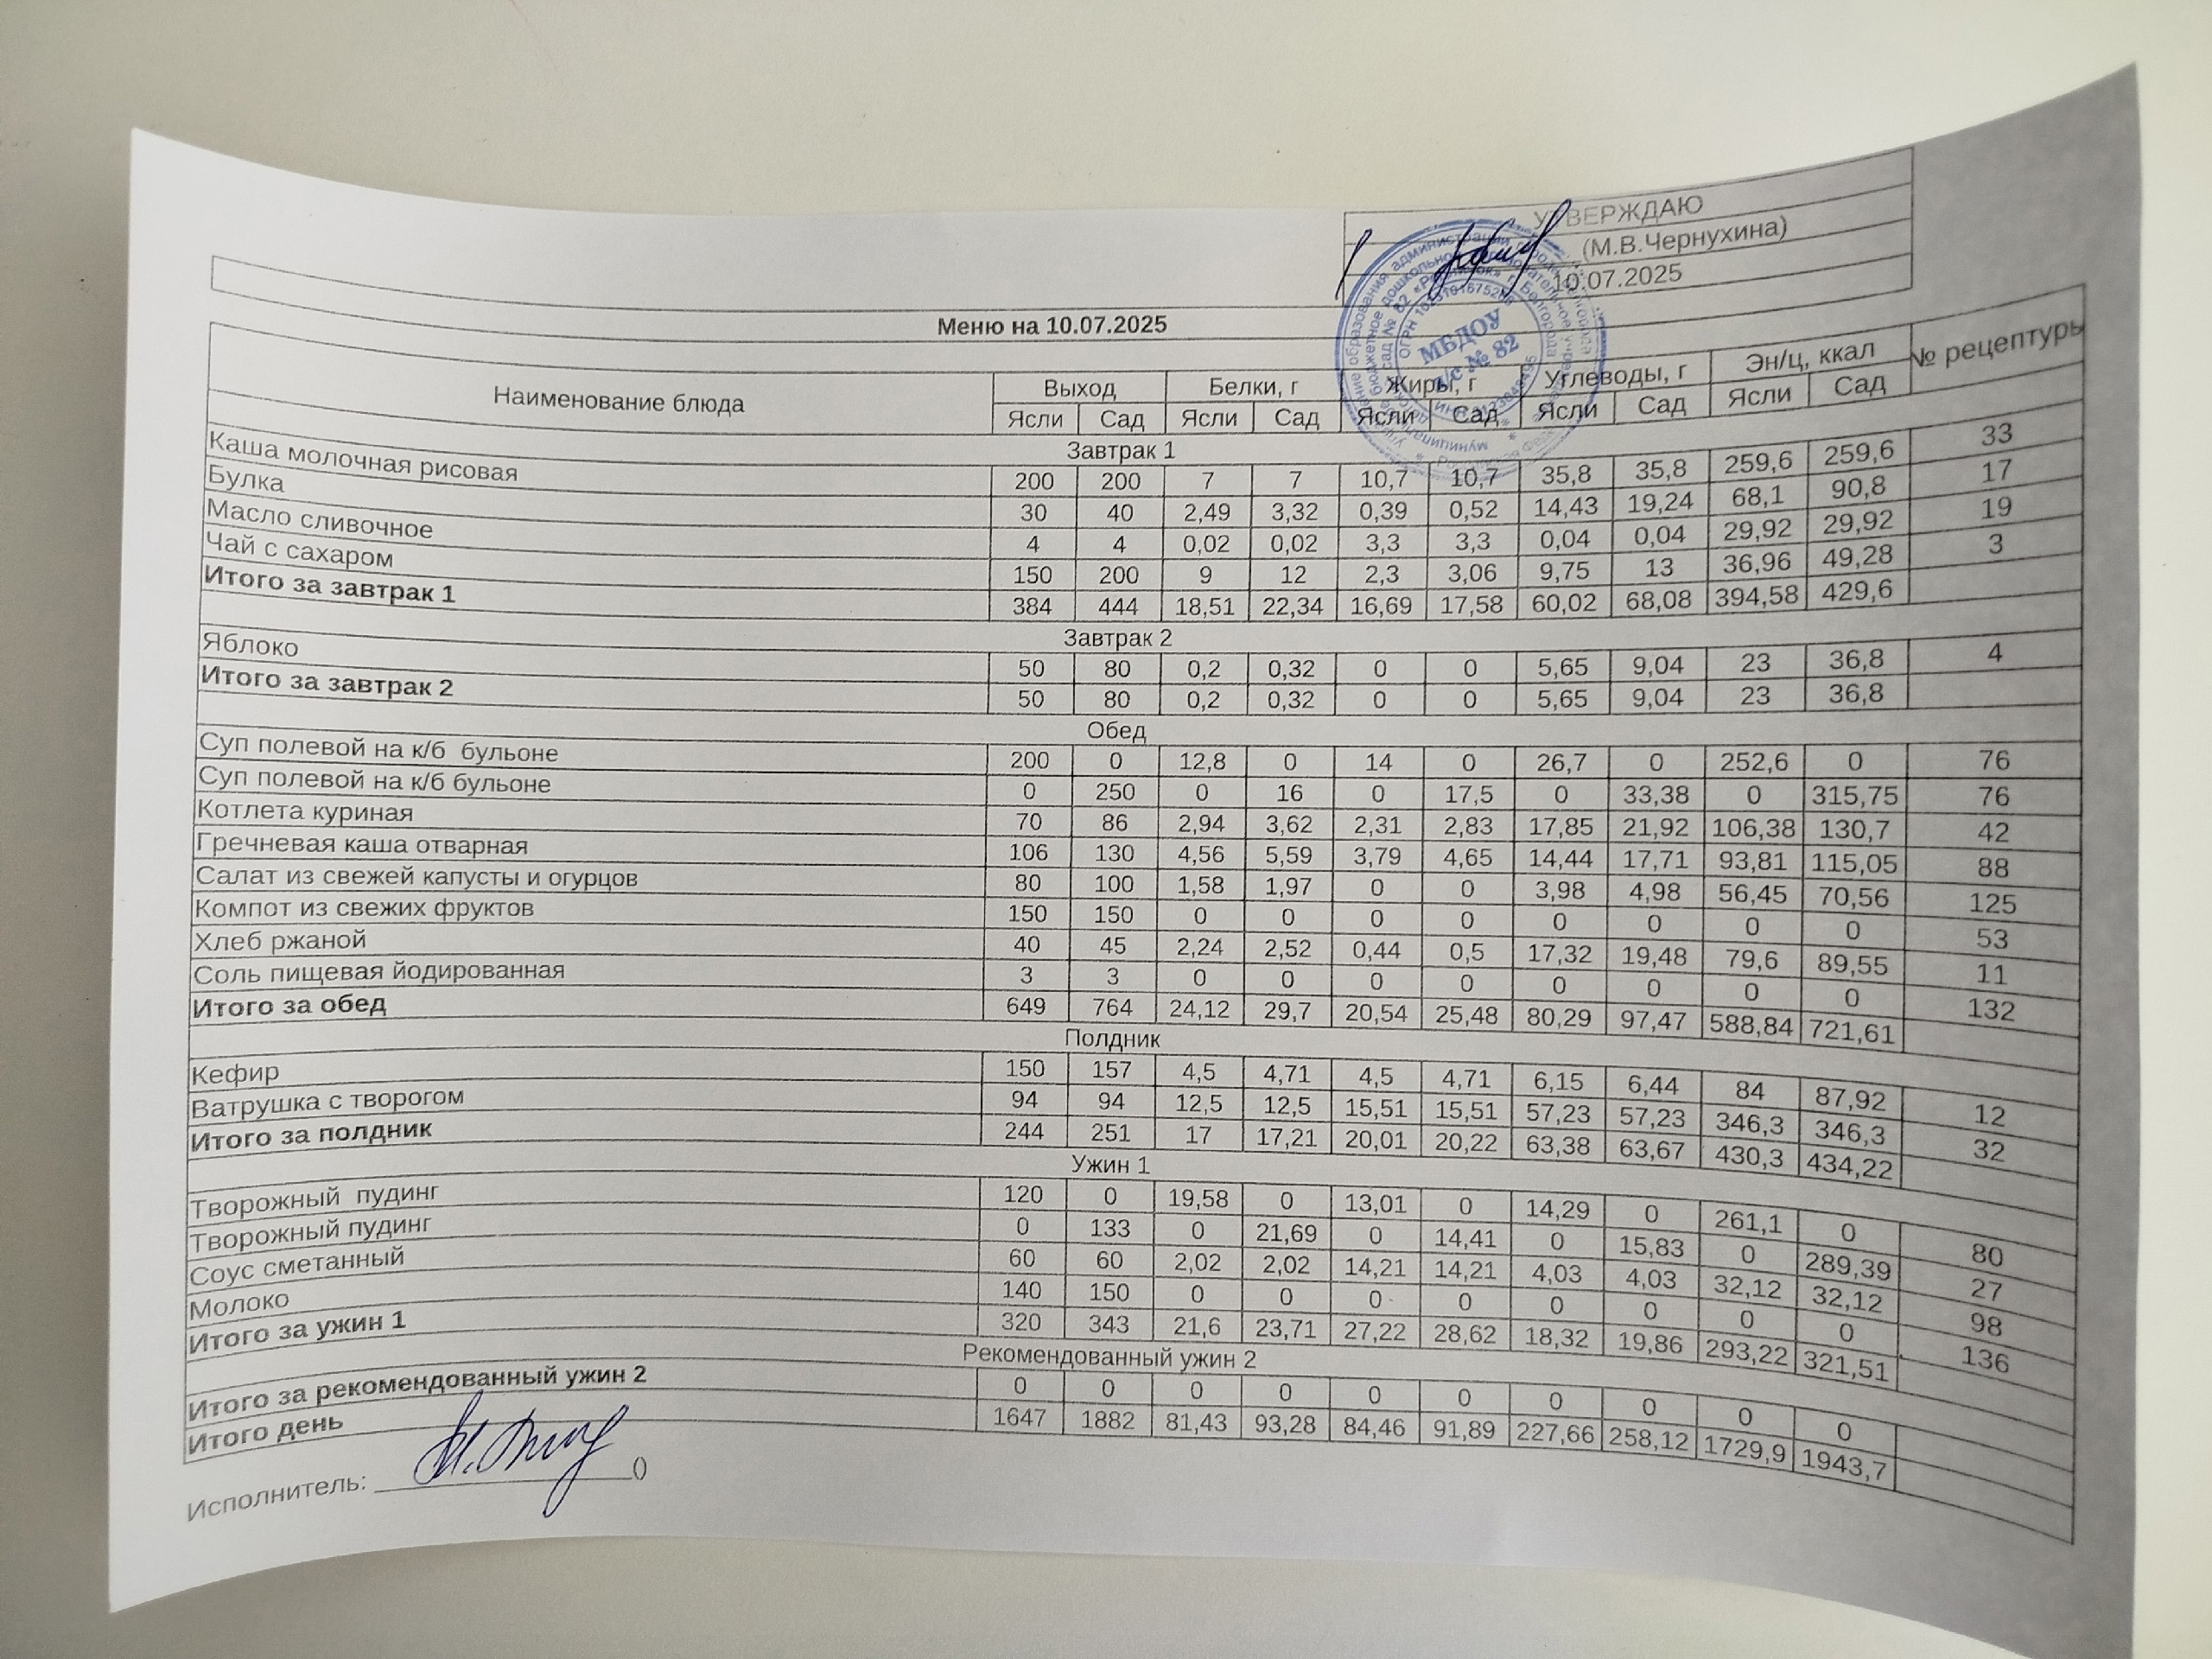 УТВЕРЖДАЮ
(М.В.Чернухина)
10.07.2025
МБДОУ
д/с № 82
Меню на 10.07.2025
Наименование блюда Выход Белки, г Жиры, г Углеводы, г Эн/ц, ккал № рецептуры
Ясли Сад Ясли Сад Ясли Сад Ясли Сад Ясли Сад
Завтрак 1
Каша молочная рисовая 200 200 7 7 10,7 10,7 35,8 35,8 259,6 259,6 33
Булка 30 40 2,49 3,32 0,39 0,52 14,43 19,24 68,1 90,8 17
Масло сливочное 4 4 0,02 0,02 3,3 3,3 0,04 0,04 29,92 29,92 19
Чай с сахаром 150 200 9 12 2,3 3,06 9,75 13 36,96 49,28 3
Итого за завтрак 1 384 444 18,51 22,34 16,69 17,58 60,02 68,08 394,58 429,6
Завтрак 2
Яблоко 50 80 0,2 0,32 0 0 5,65 9,04 23 36,8 4
Итого за завтрак 2 50 80 0,2 0,32 0 0 5,65 9,04 23 36,8
Обед
Суп полевой на к/б  бульоне 200 0 12,8 0 14 0 26,7 0 252,6 0 76
Суп полевой на к/б бульоне 0 250 0 16 0 17,5 0 33,38 0 315,75 76
Котлета куриная 70 86 2,94 3,62 2,31 2,83 17,85 21,92 106,38 130,7 42
Гречневая каша отварная 106 130 4,56 5,59 3,79 4,65 14,44 17,71 93,81 115,05 88
Салат из свежей капусты и огурцов 80 100 1,58 1,97 0 0 3,98 4,98 56,45 70,56 125
Компот из свежих фруктов 150 150 0 0 0 0 0 0 0 0 53
Хлеб ржаной 40 45 2,24 2,52 0,44 0,5 17,32 19,48 79,6 89,55 11
Соль пищевая йодированная 3 3 0 0 0 0 0 0 0 0 132
Итого за обед 649 764 24,12 29,7 20,54 25,48 80,29 97,47 588,84 721,61
Полдник
Кефир 150 157 4,5 4,71 4,5 4,71 6,15 6,44 84 87,92 12
Ватрушка с творогом 94 94 12,5 12,5 15,51 15,51 57,23 57,23 346,3 346,3 32
Итого за полдник 244 251 17 17,21 20,01 20,22 63,38 63,67 430,3 434,22
Ужин 1
Творожный  пудинг 120 0 19,58 0 13,01 0 14,29 0 261,1 0 80
Творожный пудинг 0 133 0 21,69 0 14,41 0 15,83 0 289,39 27
Соус сметанный 60 60 2,02 2,02 14,21 14,21 4,03 4,03 32,12 32,12 98
Молоко 140 150 0 0 0 0 0 0 0 0 136
Итого за ужин 1 320 343 21,6 23,71 27,22 28,62 18,32 19,86 293,22 321,51
Рекомендованный ужин 2
Итого за рекомендованный ужин 2 0 0 0 0 0 0 0 0 0 0
Итого день 1647 1882 81,43 93,28 84,46 91,89 227,66 258,12 1729,9 1943,7
Исполнитель: ()